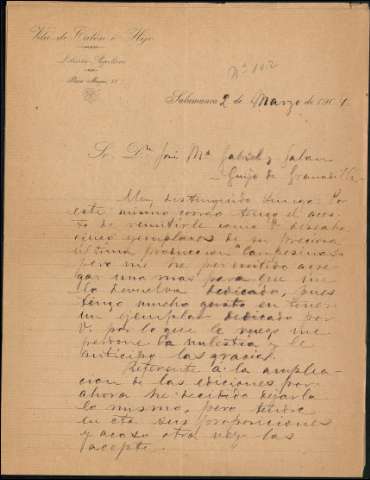 Vda. de Calón é Hijo
Librería
Plaza Mayor, 33
Nº 102
Salamanca 2 de Marzo de 1904.
Sr. Dn. José Mª Gabriel y Galan
Guijo de Granadilla
Muy distinguido amigo: Por
este mismo correo tengo el
de remitirle como V. deseaba
cinco ejemplares de su preciosa
última produccion Campesinas
pero me he permitido agre-
gar uno mas para que me
lo devuelva dedicado, pues
tengo mucho gusto en tener
un ejemplar dedicado por
V. por lo que le ruego me
perdone la molestia y le
anticipo las gracias.
Referente á la amplia-
cion de las ediciones por
ahora he decidido dejarlo
lo mismo, pero tendré
en cta. sus proposiciones
y acaso otra vez las
acepte.